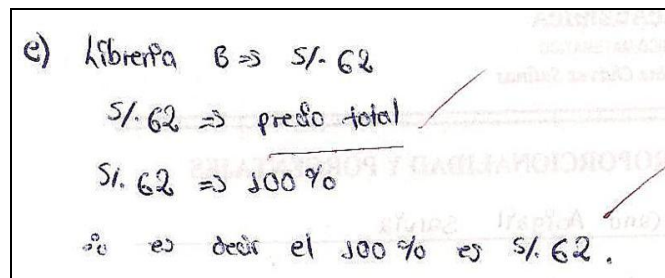 e) Librería B => S/. 62
S/. 62 => precio total
S/. 62 => 100%
∴ es decir el 100% es S/. 62.